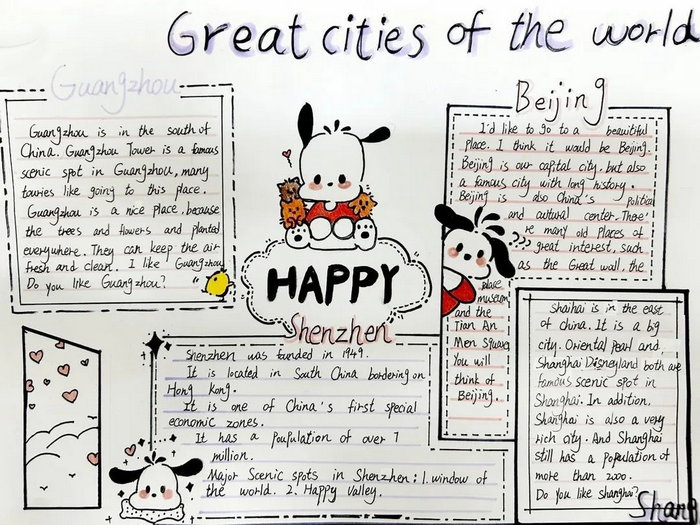 Great cities of the world
Guangzhou
Guangzhou is in the south of
China. Guangzhou Tower is a famous
scenic spot in Guangzhou, many
touries like going to this place.
Guangzhou is a nice place, because
the trees and flowers and planted
everywhere. They can keep the air
fresh and clean. I like Guangzhou
Do you like Guangzhou?
HAPPY
Beijing
I'd like to go to a beautiful
place. I think it would be Beijing.
Beijing is our capital city, but also
a famous city with long history.
Beijing is also China's political
and cultural center. There'
re many old places of
great interest, such
as the Great wall, the
place
museum,
and the
Tian An
Men Square,
You will
think of
Beijing.
Shenzhen
Shenzhen was founded in 1949.
It is located in South China bordering on
Hong Kong.
It is one of China's first special
economic zones.
It has a poupulation of over 7
million.
Major Scenic spots in Shenzhen: 1. window of
the world. 2. Happy Valley.
Shaihai is in the east
of China. It is a big
city. Oriental pearl and
Shanghai Disneyland both are
famous scenic spot in
Shanghai. In addition,
Shanghai is also a very
rich city. And Shanghai
still has a population of
more than 2000.
Do you like shanghai?
Shang